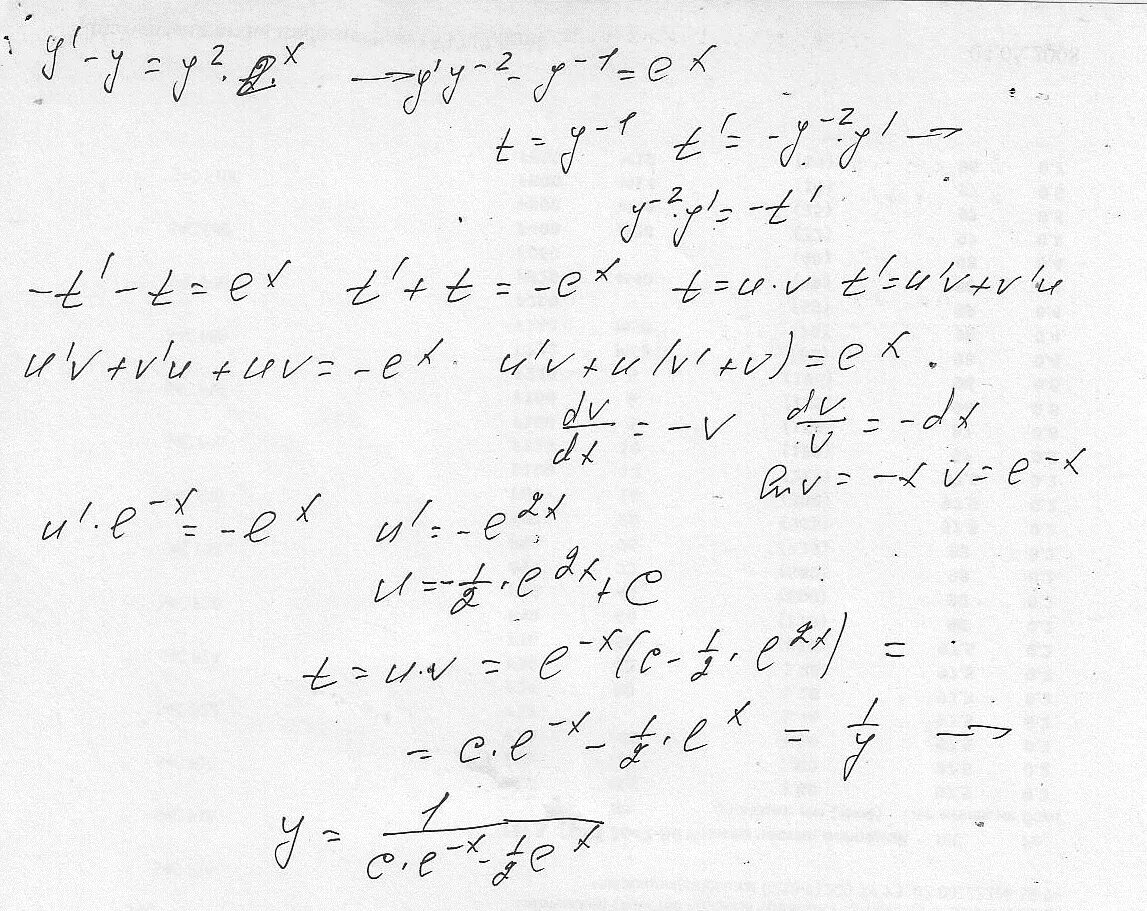 y' - y = y² · e^x → y'y⁻² - y⁻¹ = e^x
t = y⁻¹ t' = -y⁻² · y' →
y⁻² · y' = -t'
-t' - t = e^x t' + t = -e^x t = u · v t' = u'v + v'u
u'v + v'u + uv = -e^x. u'v + u(v' + v) = e^x.
dv/dx = -v dv/v = -dx
ln v = -x v = e^-x
u' · e^-x = -e^x u' = -e^2x
u = -1/2 · e^2x + c
t = u · v = e^-x (c - 1/2 · e^2x) =
= c · e^-x - 1/2 · e^x = 1/y →
y = 1/(c · e^-x - 1/2 e^x)